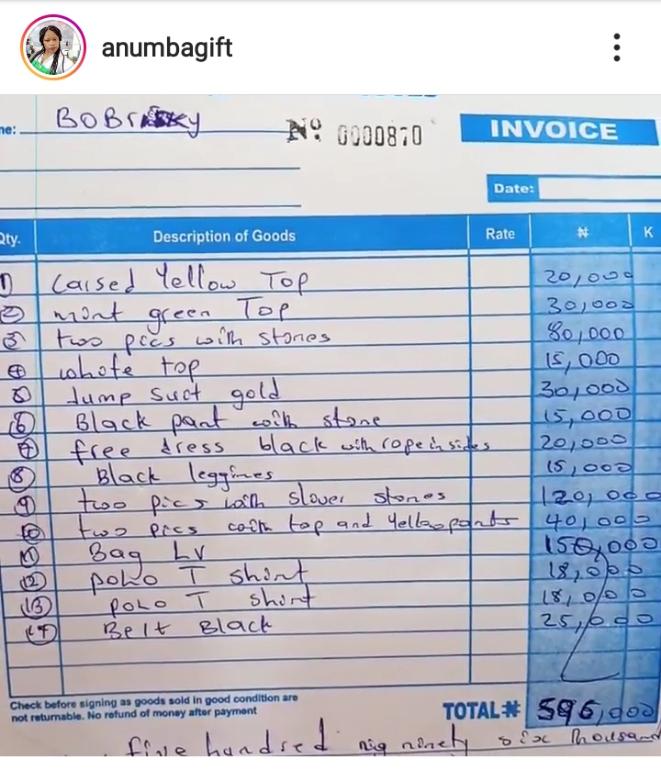 anumbagift
me: BOBrisky
Nº 0000870 INVOICE
Date:
Qty. Description of Goods Rate ₦ K
1 Caised Yellow Top 20,000
2 mint green Top 30,000
3 two pics with stones 80,000
4 white top 15,000
5 Jump suct gold 30,000
6 Black pant with stone 15,000
7 free dress black with rope in sides 20,000
8 Black leggines 15,000
9 two pics with slover stones 120,000
10 two pics with top and Yellow pants 40,000
11 Bag LV 150,000
12 polo T shirt 18,000
13 polo T shirt 18,000
14 Belt Black 25,000
Check before signing as goods sold in good condition are
not returnable. No refund of money after payment
TOTAL ₦ 596,000
five hundred ninety six thousand